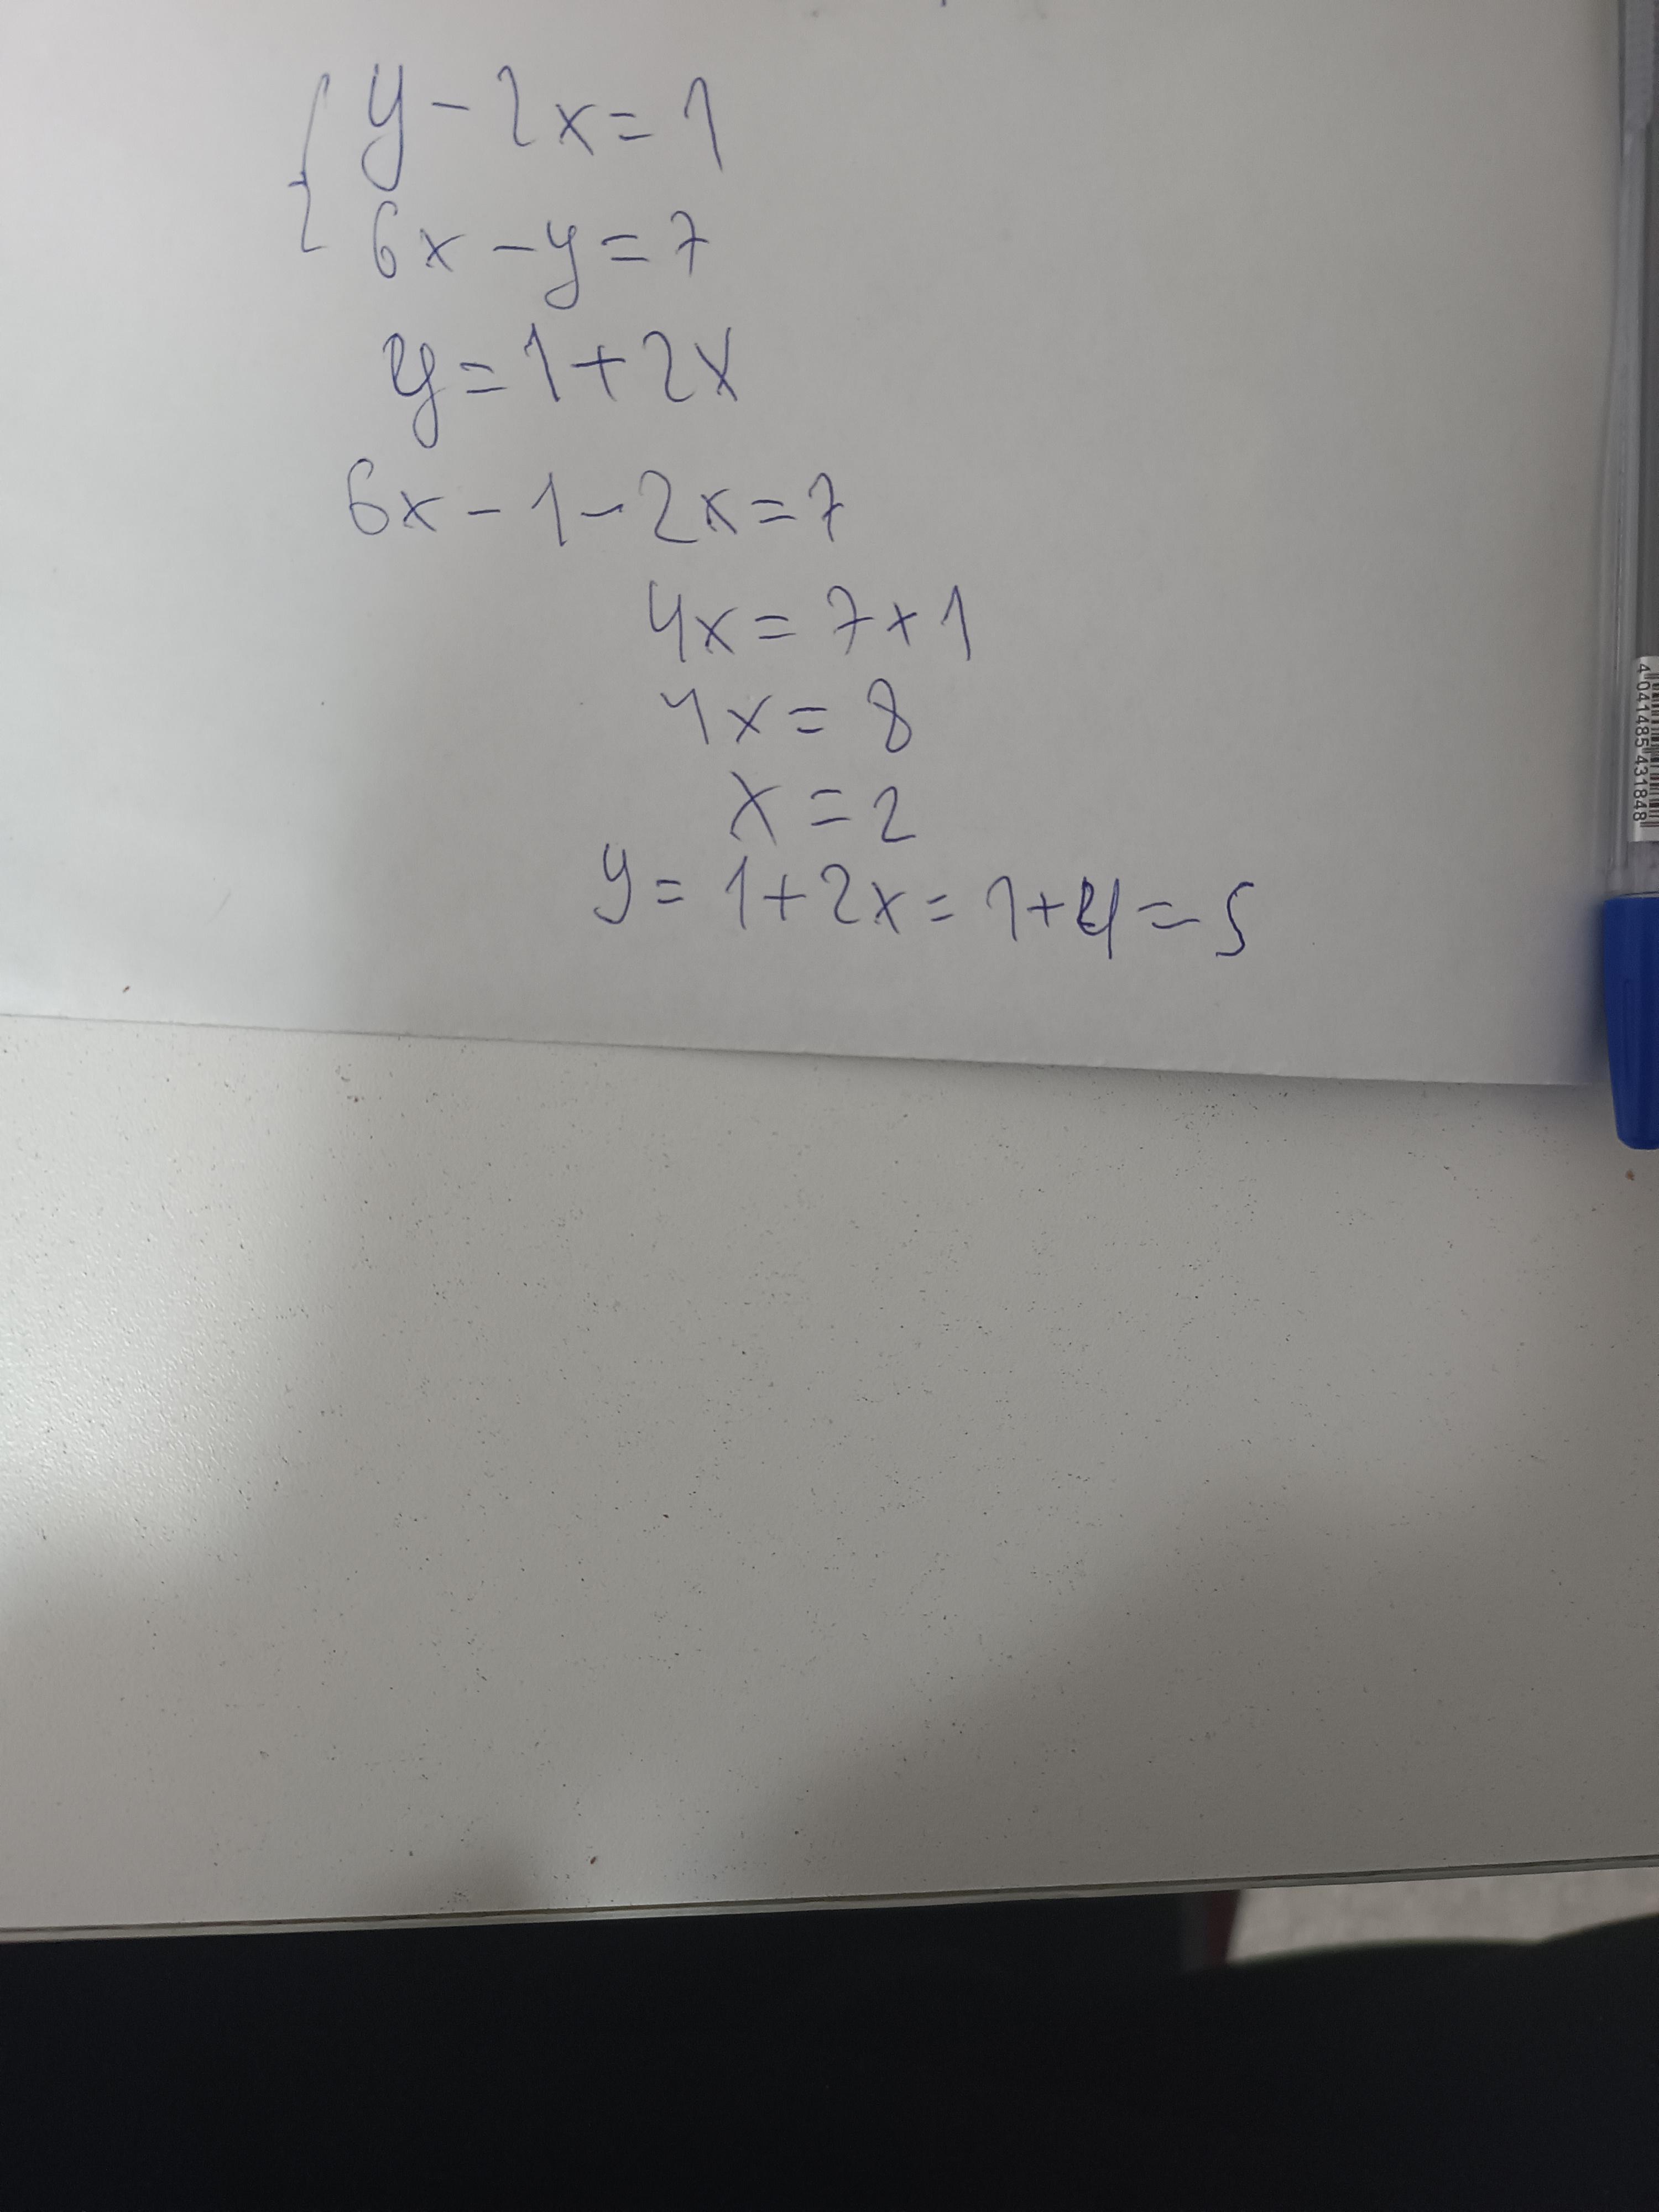 y - 2x = 1
6x - y = 7
y = 1 + 2x
6x - 1 - 2x = 7
4x = 7 + 1
4x = 8
x = 2
y = 1 + 2x = 1 + 4 = 5
4 041485 431848